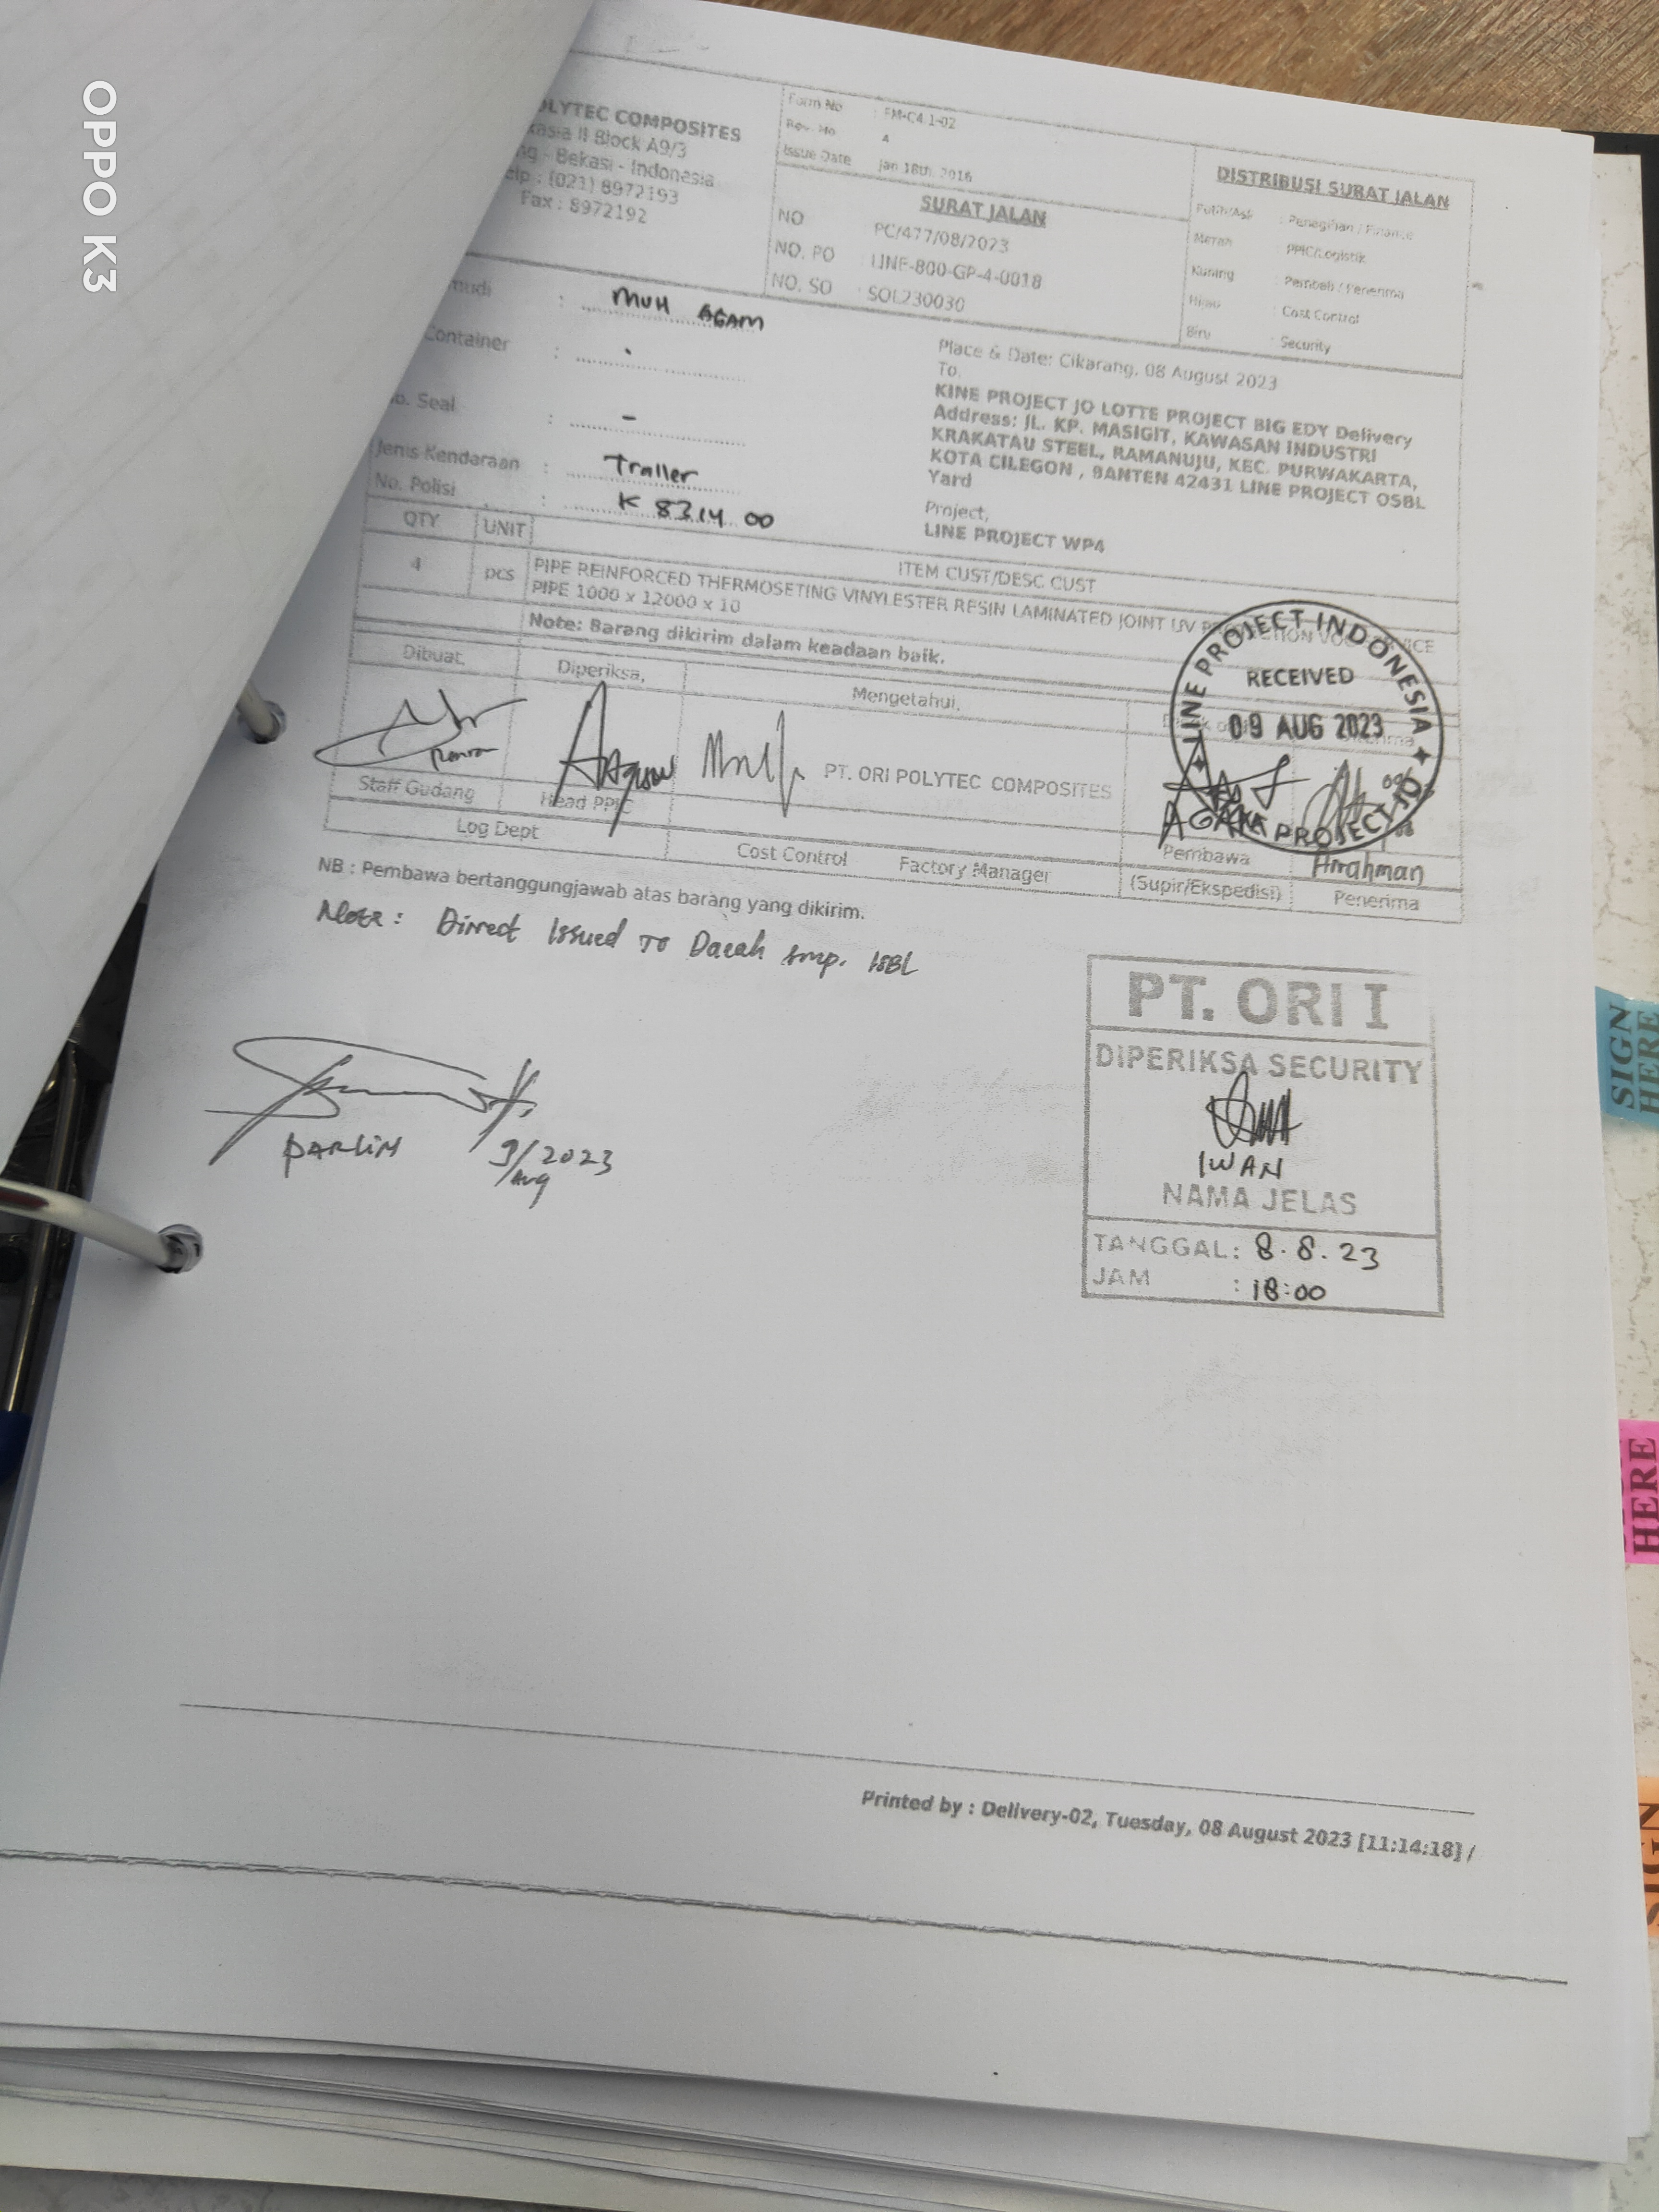 OPPO K3
OLYTEC COMPOSITES
II Block A9/3
- Bekasi - Indonesia
: (021) 8972193
Fax : 8972192
Form No : FM-C4.1-02
Rev. No A
Issue Date Jan 18th, 2016
SURAT JALAN
NO PC/477/08/2023
NO. PO : LINE-800-GP-4-0018
NO. SO : SOL230030
DISTRIBUSI SURAT JALAN
Putih/Asli : Penagihan / Finance
Merah PPIC/Logistik
Kuning : Pembeli / Penerima
Hijau : Cost Control
Biru : Security
mudi : MUH AGAM
Container : -
o. Seal : -
Jenis Kendaraan : Trailer
No. Polisi : K 8314 OO
Place & Date: Cikarang, 08 August 2023
To.
KINE PROJECT JO LOTTE PROJECT BIG EDY Delivery
Address: JL. KP. MASIGIT, KAWASAN INDUSTRI
KRAKATAU STEEL, RAMANUJU, KEC. PURWAKARTA,
KOTA CILEGON , BANTEN 42431 LINE PROJECT OSBL
Yard
Project,
LINE PROJECT WP4
QTY UNIT ITEM CUST/DESC CUST
4 pcs PIPE REINFORCED THERMOSETING VINYLESTER RESIN LAMINATED JOINT UV
PIPE 1000 x 12000 x 10
Note: Barang dikirim dalam keadaan baik.
Dibuat, Diperiksa, Mengetahui,
LINE PROJECT INDONESIA
RECEIVED
09 AUG 2023
PT. ORI POLYTEC COMPOSITES
AGAM
Arrahman
Staff Gudang Head PPIC
Log Dept Cost Control Factory Manager
Pembawa
(Supir/Ekspedisi) Penerima
NB : Pembawa bertanggungjawab atas barang yang dikirim.
Note : Direct Issued To Daeah Smp. ISBL
DARLIM 9/Aug/2023
PT. ORI I
DIPERIKSA SECURITY
IWAN
NAMA JELAS
TANGGAL: 8.8.23
JAM : 18:00
SIGN HERE
HERE
SIGN
Printed by : Delivery-02, Tuesday, 08 August 2023 [11:14:18] /